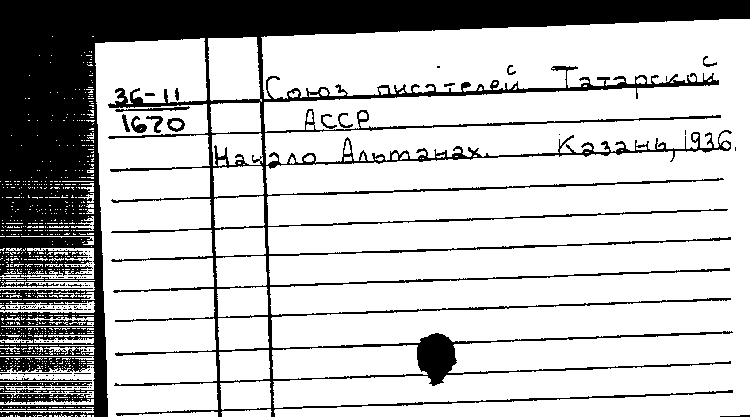 36-11 Союз писателей Татарской
1670 АССР
Начало. Альманах. Казань, 1936.